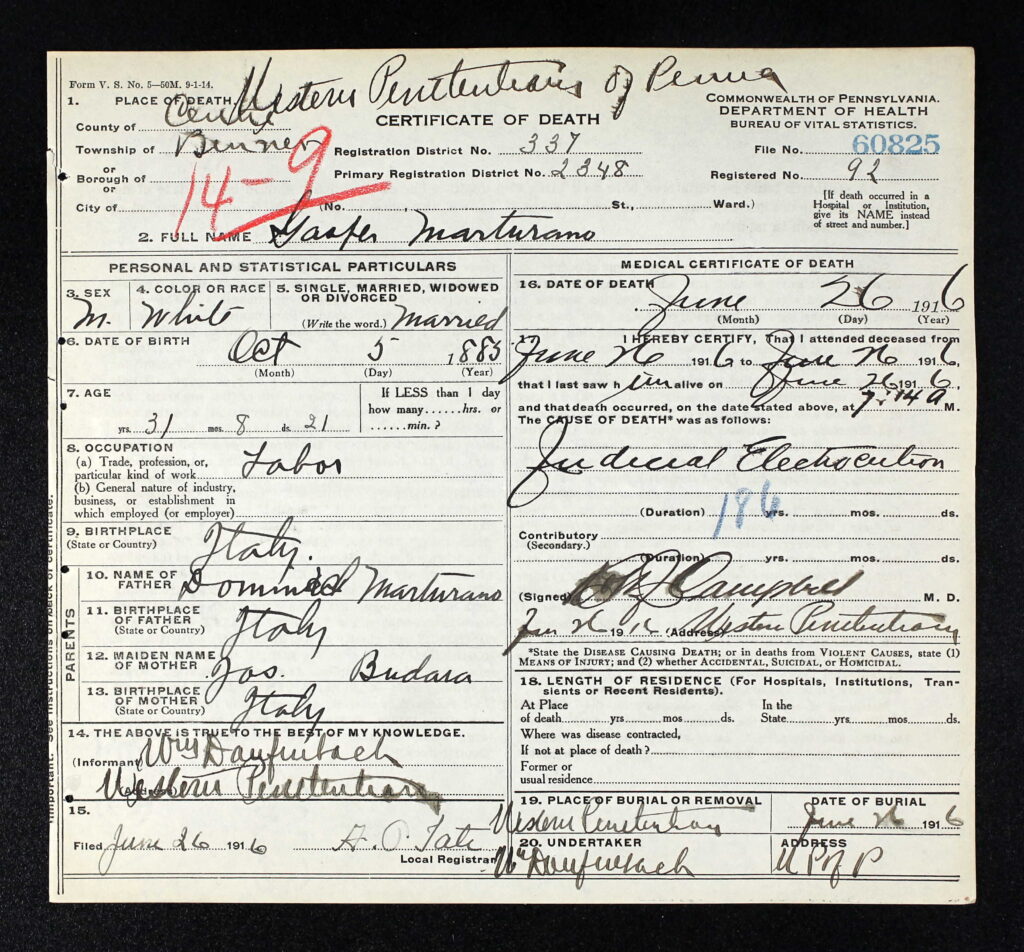 Form V. S. No. 5—50M. 9-1-14.
Western Penitentiary of Penna
1. PLACE OF DEATH.
County of Centre
CERTIFICATE OF DEATH
COMMONWEALTH OF PENNSYLVANIA.
DEPARTMENT OF HEALTH
BUREAU OF VITAL STATISTICS.
Township of Benner
Registration District No. 337
File No. 60825
or
Borough of
Primary Registration District No. 2348
Registered No. 92
or
14-9
City of (No. St., Ward.)
[If death occurred in a
Hospital or Institution,
give its NAME instead
of street and number.]
2. FULL NAME Marturano
PERSONAL AND STATISTICAL PARTICULARS
3. SEX
M.
4. COLOR OR RACE
White
5. SINGLE, MARRIED, WIDOWED
OR DIVORCED
(Write the word.) Married
6. DATE OF BIRTH
Oct 5 1885
(Month) (Day) (Year)
7. AGE
yrs. 31 mos. 8 ds. 21
If LESS than 1 day
how many ...... hrs. or
...... min.?
8. OCCUPATION
(a) Trade, profession, or,
particular kind of work Labor
(b) General nature of industry,
business, or establishment in
which employed (or employer)
9. BIRTHPLACE
(State or Country) Italy.
PARENTS
10. NAME OF
FATHER Marturano
11. BIRTHPLACE
OF FATHER
(State or Country) Italy
12. MAIDEN NAME
OF MOTHER Jos. Budara
13. BIRTHPLACE
OF MOTHER
(State or Country) Italy
14. THE ABOVE IS TRUE TO THE BEST OF MY KNOWLEDGE.
(Informant) Wm
(Address) Western Penitentiary
15.
Filed June 26 1916 H. P. Tate
Local Registrar
Important. See instructions on back of certificate.
MEDICAL CERTIFICATE OF DEATH
16. DATE OF DEATH
June 26 1916
(Month) (Day) (Year)
17. I HEREBY CERTIFY, That I attended deceased from
June 26 1916 to June 26 1916
that I last saw him alive on June 26 1916,
and that death occurred, on the date stated above, at 7:14 a M.
The CAUSE OF DEATH* was as follows:
Judicial Electrocution
186
(Duration) yrs. mos. ds.
Contributory
(Secondary.)
(Duration) yrs. mos. ds.
(Signed) Campbell M. D.
26 1916 (Address) Western Penitentiary
*State the DISEASE CAUSING DEATH; or in deaths from VIOLENT CAUSES, state (1)
MEANS OF INJURY; and (2) whether ACCIDENTAL, SUICIDAL, or HOMICIDAL.
18. LENGTH OF RESIDENCE (For Hospitals, Institutions, Tran-
sients or Recent Residents).
At Place In the
of death yrs. mos. ds. State yrs. mos. ds.
Where was disease contracted,
If not at place of death?
Former or
usual residence
19. PLACE OF BURIAL OR REMOVAL
Western Penitentiary
DATE OF BURIAL
June 26 1916
20. UNDERTAKER
Wm
ADDRESS
W P of P